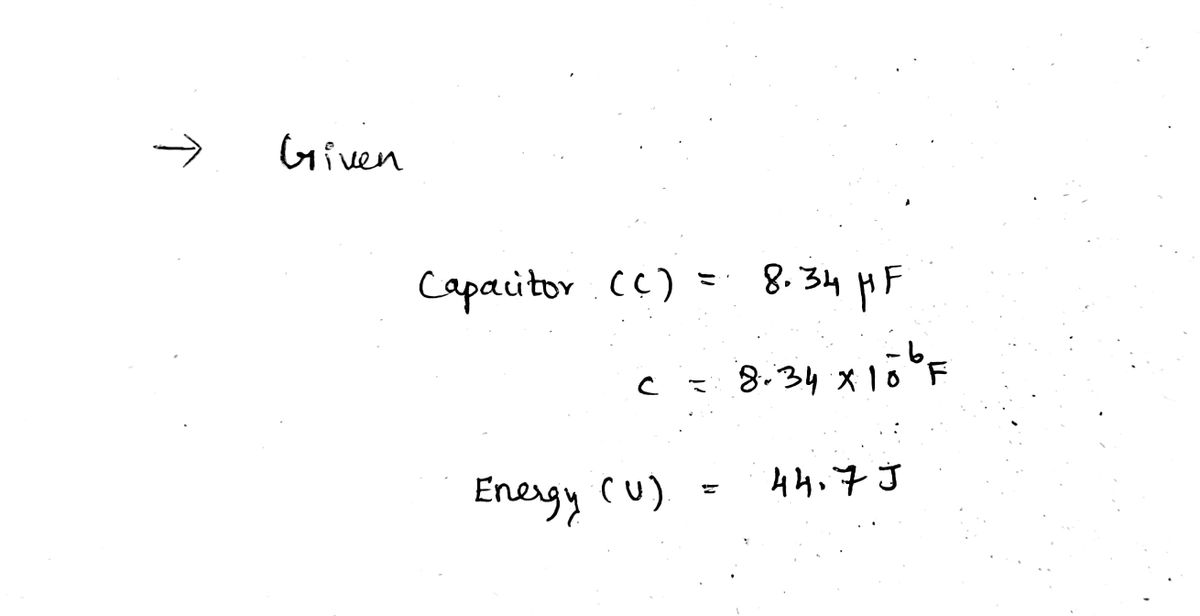 → Given
Capacitor (C) = 8.34 μF
C = 8.34 x 10⁻⁶ F
Energy (U) = 44.7 J